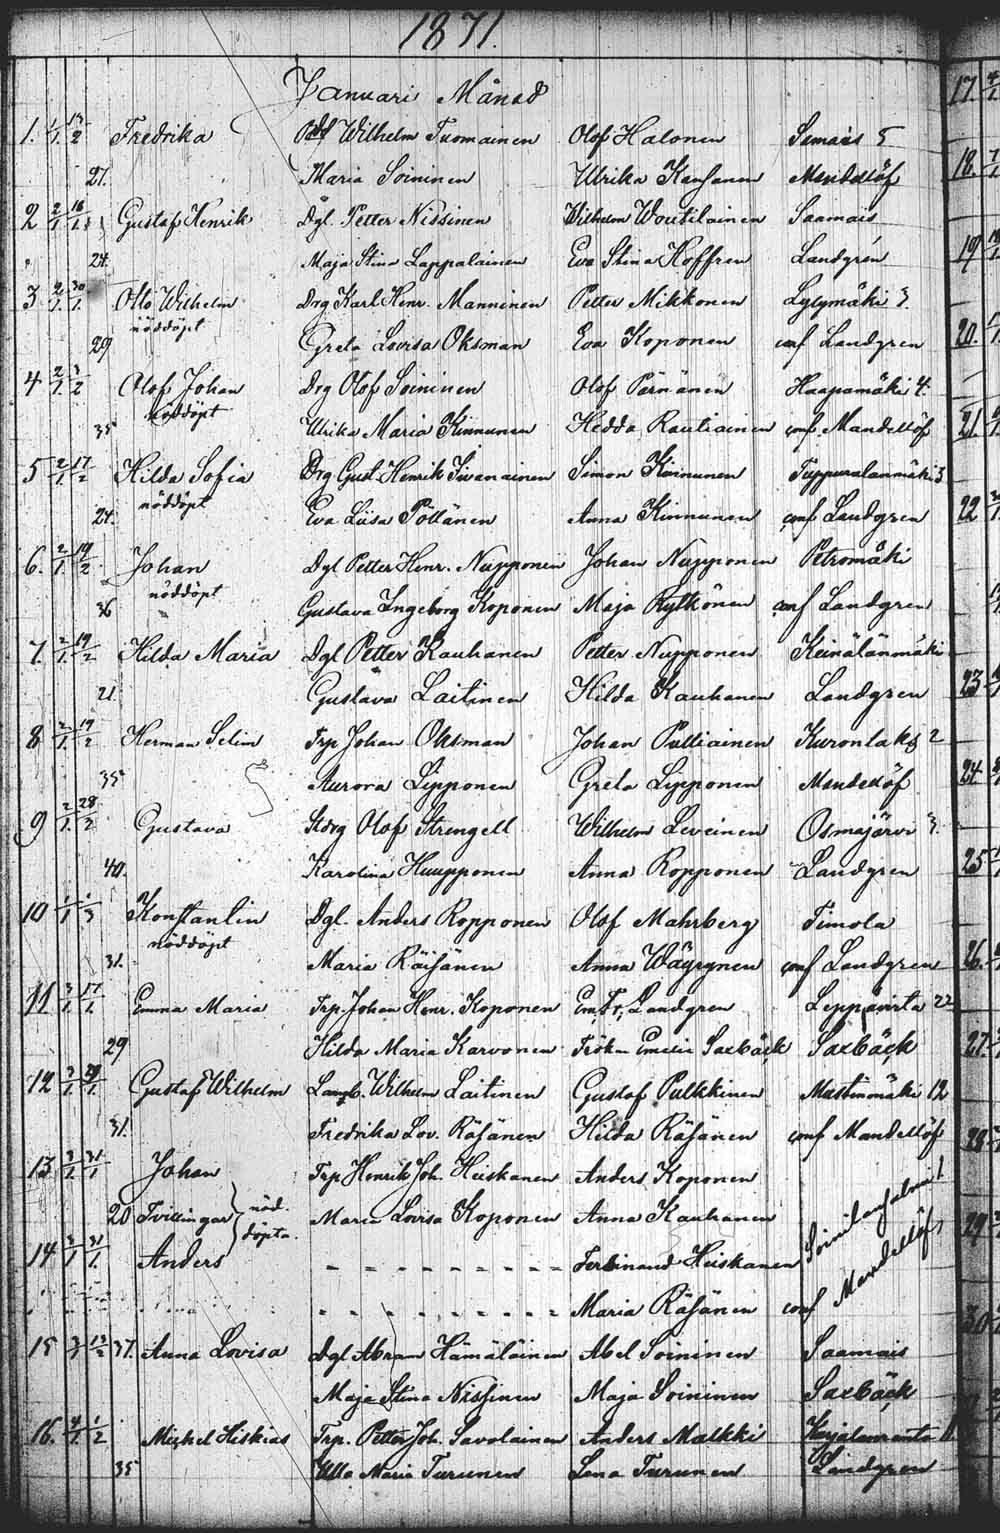 1871.
Januari Månad
1. 1/1 13/2 Fredrika Wilhelm Tuomainen Olof Halonen Samais 5
27. Maria Soininen Ulrika Kansanen Mandellöf
2 2/1 16/1 Gustaf Henrik Dgl. Petter Nissinen Wilhelm Woutilainen Saamais
24. Maja Stina Lappalainen Eva Stina Hoffren Landgrén
3 2/1 30/1 Otto Wilhelm Drg Karl Henr. Manninen Petter Mikkonen Lylymäki 3.
nöddöpt
29 Greta Lovisa Oksman Eva Koponen conf Landgren
4 2/1 3/2 Olof Johan Drg Olof Soininen Olof Pärnänen Haapamäki 4.
nöddöpt
35 Ulrika Maria Kinnunen Hedda Rautiainen conf. Mandellöf
5 2/1 17/2 Hilda Sofia Drg Gust. Henrik Sivanainen Simon Kinnunen Tuppuralanmäki 3
nöddöpt
24. Eva Liisa Pöllänen Anna Kinnunen conf Landgren
6. 2/1 19/2 Johan Dgl Petter Henr. Nupponen Johan Nupponen Petromäki
nöddöpt
36 Gustava Ingeborg Koponen Maja Kylkönen conf Landgren
7. 2/1 19/2 Hilda Maria Dgl Petter Kauhanen Petter Nupponen Keinälänmäki
21. Gustava Laitinen Hilda Kauhanen Landgren
8 2/1 19/2 Herman Selim Trp Johan Oksman Johan Pulliainen Kuronlaks 2
35 Aurora Lipponen Greta Lipponen Mandellöf
9 2/1 28/2 Gustava Olof Strengell Wilhelm Leveinen Osmajärvi 3.
40. Karolina Huupponen Anna Ropponen Landgren
10 1/1 1/3 Konstantin Dgl. Anders Ropponen Olof Mahrberg Timola
nöddöpt
31. Maria Räisänen Anna Wäyrynen conf Landgren
11 3/1 17/1 Emma Maria Trp. Johan Henr. Koponen Landgren Leppävirta 22
29 Hilda Maria Karvonen Frökn Emelie Saxbäck Saxbäck
12 3/1 29/1 Gustaf Wilhelm Wilhelm Laitinen Gustaf Pulkkinen Mustinmäki 12
31. Fredrika Lov. Räsänen Hilda Räsänen conf Mandellöf
13 3/1 31/1 Johan Trp Henrik Joh. Heiskanen Anders Koponen
20 Tvillingar nöd- Maria Lovisa Koponen Anna Kauhanen
döpta.
14 3/1 31/1 Anders - - - - - - - - - Ferdinand Heiskanen
- - - - - - - - - Maria Räsänen conf Mandellöf
15 3/1 13/2 37. Anna Lovisa Dgl Abram Hämäläinen Abel Soininen Saamais
Maja Stina Nissinen Maja Soininen Saxbäck
16. 4/1 1/2 Michel Hiskias Trp. Petter Joh. Savolainen Anders Malkki
35 Ulla Maria Turunen Lena Turunen Landgren
17. 4/1
18. 7/1
19
20.
21.
22
23
24.
25
26.
27.
28
29
30